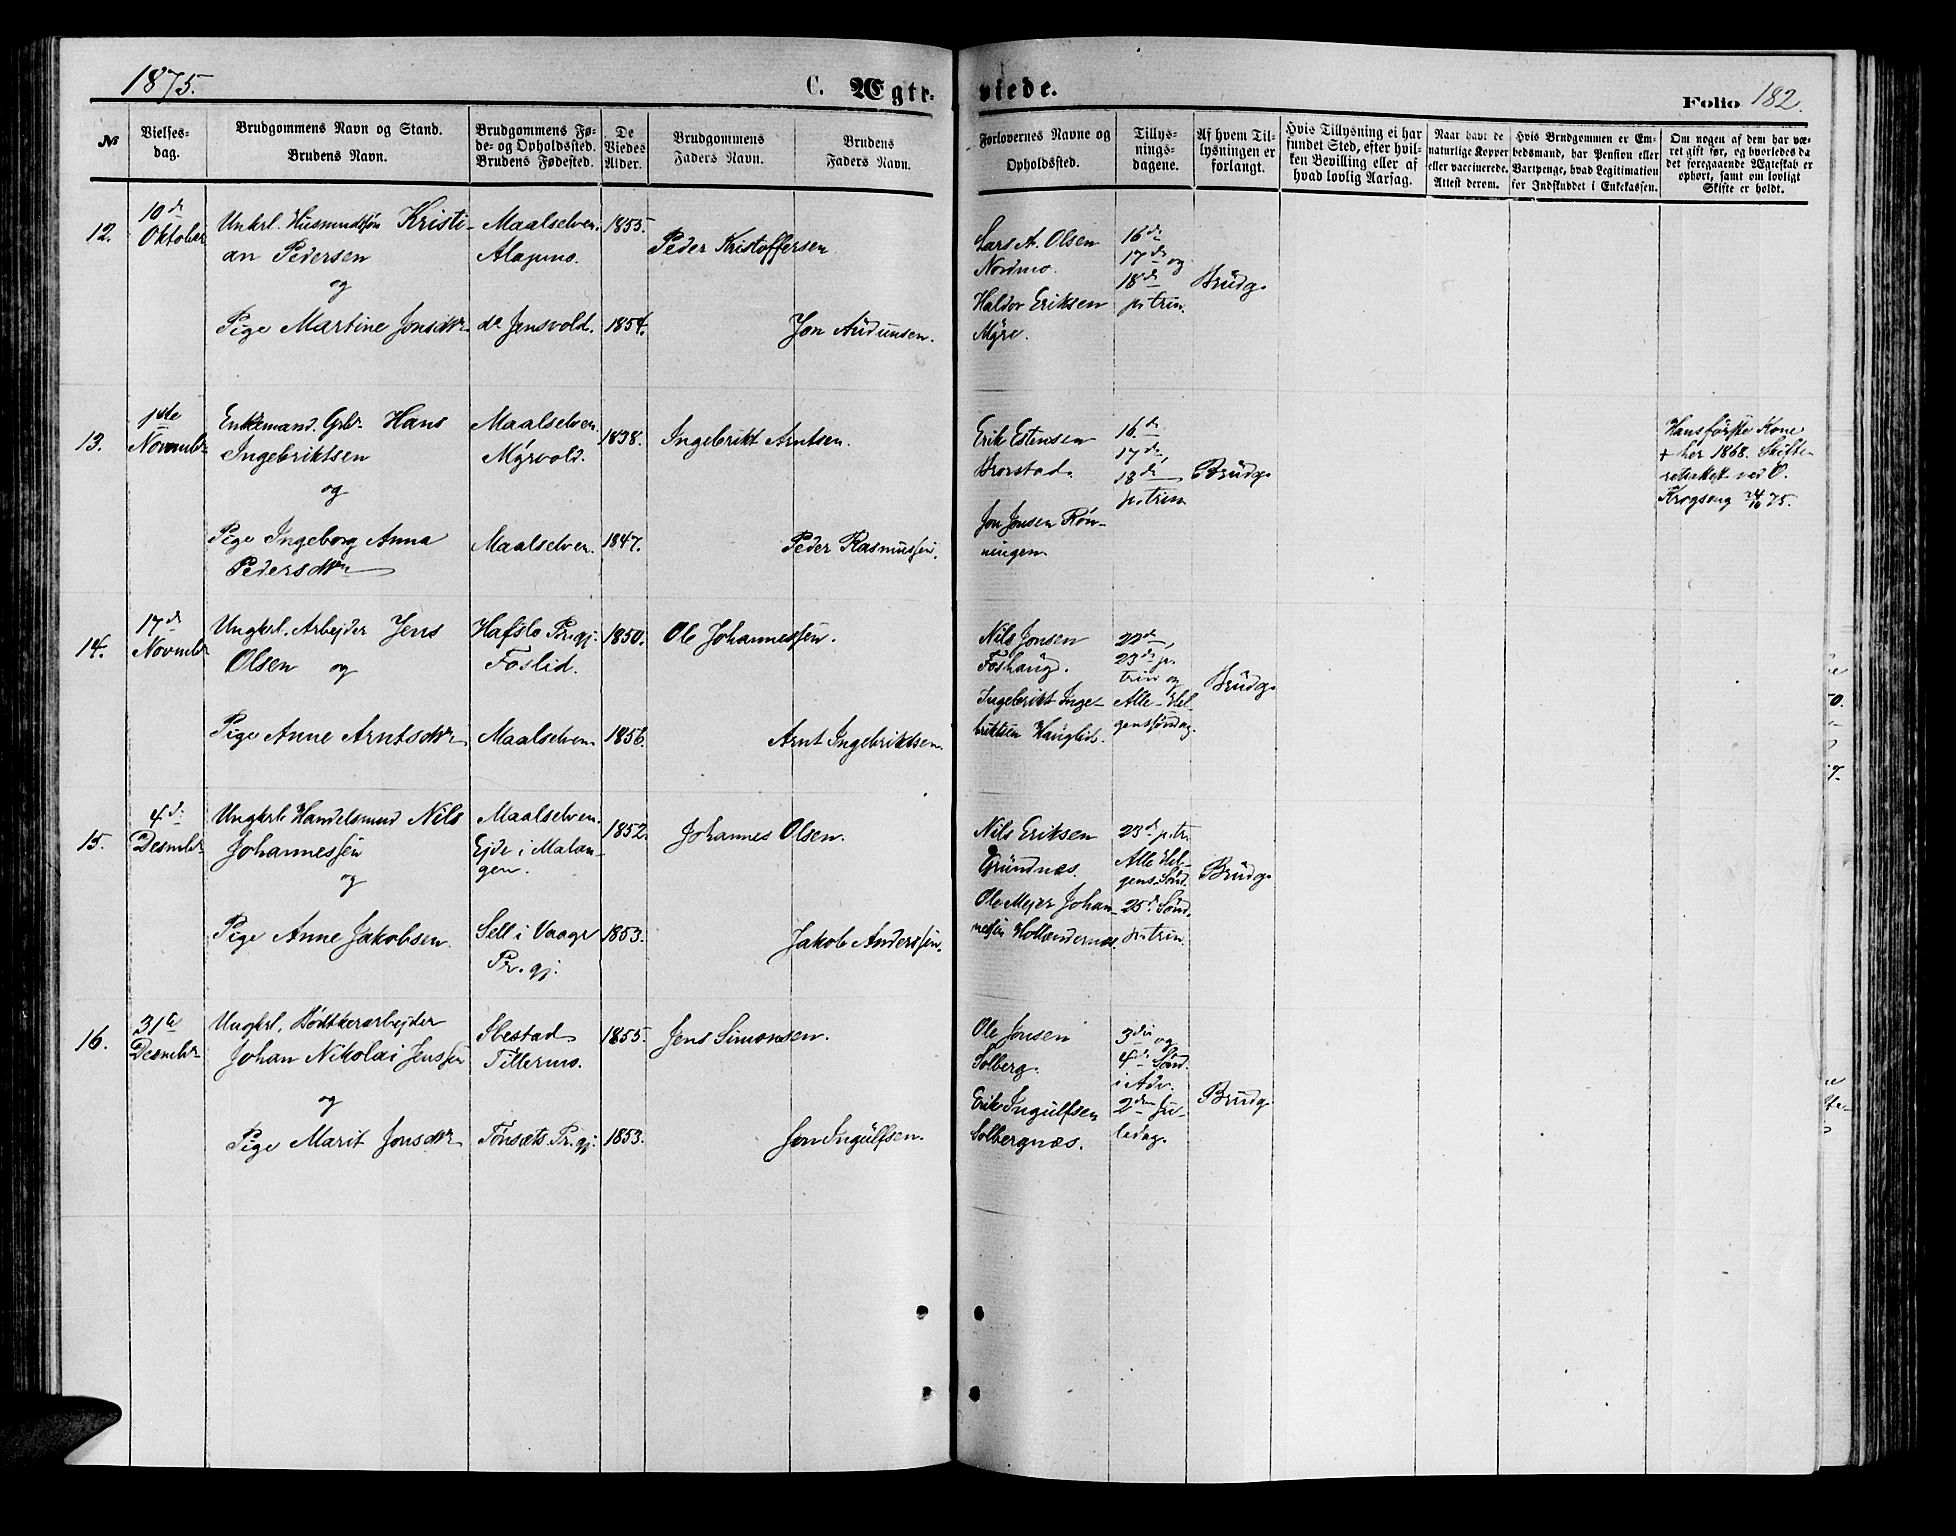 1875.
C. Ægtr-
viede.
Folio 182.
№
Vielses-
dag.
Brudgommens Navn og Stand.
Brudens Navn.
Brudgommens Fø-
de- og Opholdssted.
Brudens Fødested.
De
Viedes
Alder.
Brudgommens
Faders Navn.
Brudens
Faders Navn.
Forlovernes Navne og
Opholdssted.
Tillys-
nings-
dagene.
Af hvem Til-
lysningen er
forlangt.
Hvis Tillysning ei har
fundet Sted, efter hvil-
ken Bevilling eller af
hvad lovlig Aarsag.
Naar havt de
naturlige Kopper
eller vaccinerede.
Attest derom.
Hvis Brudgommen er Em-
bedsmand, har Pension eller
Vartpenge, hvad Legitimation
for Indskuddet i Enkekassen.
Om nogen af dem har væ-
ret gift før, og hvorledes da
det foregaaende Ægteskab er
ophørt, samt om lovligt
Skifte er holdt.
12.
10de
Oktober
Unkrl. Husmandssøn Kristi-
an Pedersen
og
Pige Martine Jonsdtr
Maalselven.
Alapmo.
do Jensvold.
1855.
1854.
Peder Kristoffersen
Jon Audunsen.
Lars A. Olsen
Nordmo.
Haldor Eriksen
Myre.
16de
17de og
18de
p. trin.
Brudg.
13.
1ste
Novembr
Enkemand. Grbr. Hans
Ingebriktsen
og
Pige Ingeborg Anna
Pedersdtr
Maalselven.
Myrvold.
Maalselven.
1838.
1847.
Ingebrikt Arntsen.
Peder Rasmussen.
Erik Estensen
Brorstad.
Jon Jonsen Røn-
ningen
16de
17de,
18de
p. trin
Brudg.
Hans første Kone
+ her 1868. Skifte-
retsattest ved O.
Krogseng 24/10 75.
14.
17de
Novembr
Ungkrl. Arbejder Jens
Olsen og
Pige Anne Arntsdtr
Hafslo Pr.gj.
Foslid.
Maalselven
1850.
1856.
Ole Johannessen.
Arnt Ingebriktsen
Nils Jonsen
Foshaug.
Ingebrikt Inge-
briktsen Hauglid.
22de,
23de p.
trin og
Alle-Hel-
genssøndag.
Brudg.
15.
4de
Desembr
Ungkrl. Handelsmand Nils
Johannessen
og
Pige Anne Jakobsen.
Maalselven.
Ejde i Malan-
gen.
Sell i Vaage
Pr. gj.
1852.
1853.
Johannes Olsen.
Jakob Anderssen.
Nils Eriksen
Grundnæs.
Ole Mejer Johan-
nessen Hollendernæs.
23de p. tr.
Alle Hel-
gens Sønd.
25de Sønd.
p. trin.
Brudg.
16.
31te
Desembr
Ungkrl. Bødtkerarbejder
Johan Nikolai Jenssen
og
Pige Marit Jonsdtr
Ibestad
Tillermo.
Tønsæts Pr. gj.
1855.
1853.
Jens Simonsen.
Jon Ingulfsen.
Ole Jonsen
Solberg.
Erik Ingulfsen
Solbergnæs.
3die og
4de Sønd.
i Adv.
2den Ju-
ledag.
Brudg.